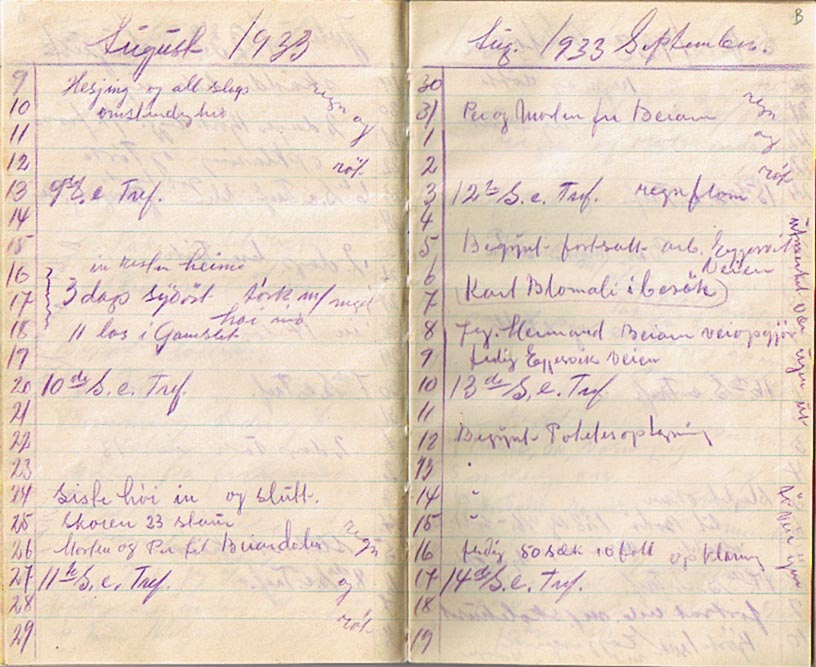 August 1933
9 Hesjing og all slags regn
10 omstendighed og
11
12 röt
13 9de S. e. Tref.
14
15
16 in resten heime
17 3 dags sydöst törk m/ meget
18 11 las i Gamslet. höi inn
19
20 10de S. e. Tref.
21
22
23
24 siste höi in og slutt.
25 Skoren 23 staur
26 Morten og Per til Beiardalen regn
27 11te S. e. Tref. og
28
29 röt
B
Aug. 1933 September.
30
31 Per og Morten fra Beiarn regn
1 og
2 röt
3 12te S. e. Tref. regnflom
4
5 Begynt fortsatt arb. Eggesvik
6 Veien
7 (Karl Blomali i besök)
8 Jeg. Hermand Beiarn veiopgjör
9 ferdig Eggesvik Veien
10 13de S. e. Tref.
11
12 Begynt Potetesoptagning
13 "
14 "
15 "
16 ferdig 50 sæk opklaring
17 14de S. e. Tref.
18
19
utmerket vær